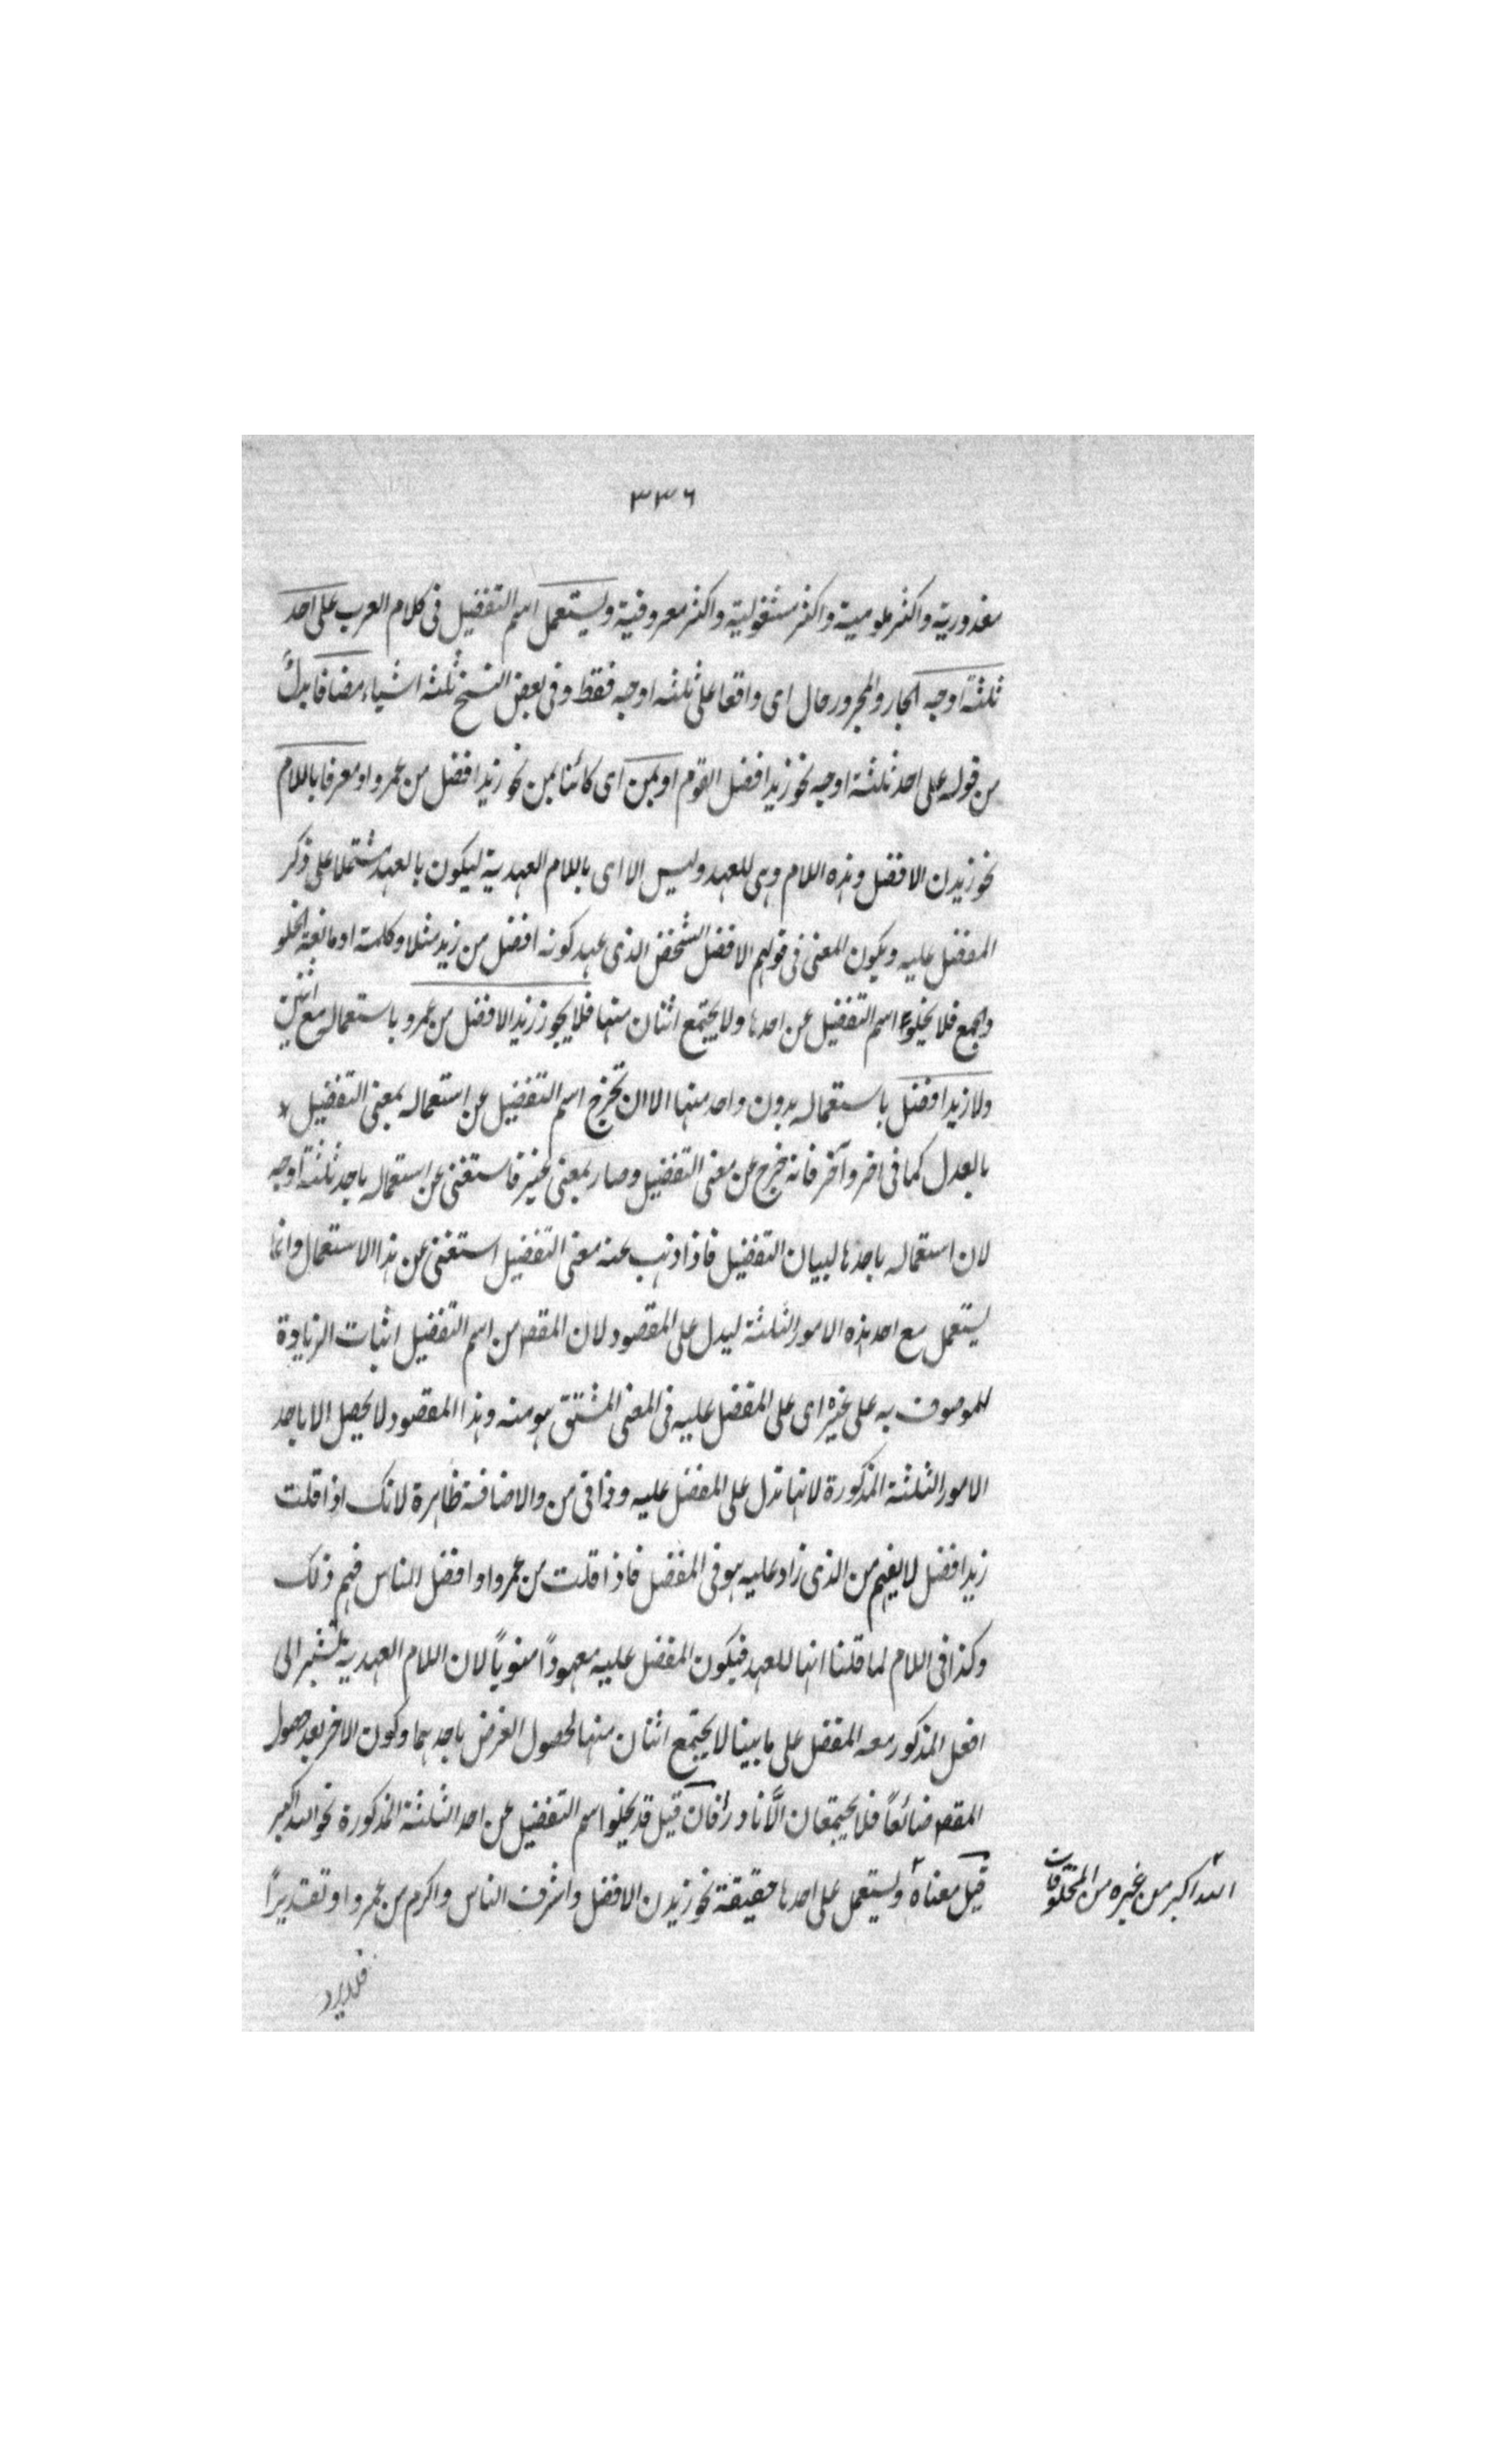 ٣٣٦
معذورية واكثر ملومية واكثر مشغولية واكثر معروفية ويستعمل اسم التفضيل فى كلام العرب على احد
ثلثة اوجه الجار والمجرور حال اى واقعا على ثلثه اوجه فقط وفى بعض النسخ ثلثه اشياء مضافا بدلٌ
من قوله على احد ثلثة اوجه نحو زيد افضل القوم او بمن اى كائنا بمن نحو زيد افضل من عمرو او معرفا باللام
نحو زيدن الافضل وهذه اللام وهى للعهد وليس الا اى باللام العهدية ليكون بالعهد مشتملا على ذكر
المفضل عليه ويكون المعنى فى قولهم الافضل الشخص الذى عهد كونه افضل من زيد مثلا وكلمة او مانعة الخلو
والجمع فلا يخلو اسم التفضيل عن احدها ولا يجتمع اثنان منها فلا يجوز زيد الافضل من عمرو باستعماله مع اثنين
ولا زيد افضل باستعماله بدون واحد منها الا ان تخرج اسم التفضيل عن استعماله بمعنى التفضيل
بالعدل كما فى اخر وآخر فانه خرج عن معنى التفضيل وصار بمعنى غير فاستغنى عن استعماله باحد ثلثة اوجه
لان استعماله باحدها لبيان التفضيل فاذا ذهب عنه معنى التفضيل استغنى عن هذا الاستعمال وانما
يستعمل مع احد هذه الامور الثلثة ليدل على المقصود لان المقصد من اسم التفضيل اثبات الزيادة
للموصوف به على غيره اى على المفضل عليه فى المعنى المشتق هو منه وهذا المقصود لا يحصل الا باحد
الامور الثلثة المذكورة لانها تدل على المفضل عليه وذا فى من والاضافة ظاهرة لانك اذا قلت
زيد افضل لا يفهم من الذى زاد عليه هو فى المفضل فاذا قلت من عمرو او افضل الناس فهم ذلك
وكذا فى اللام لما قلنا انها للعهد فيكون المفضل عليه معهوداً منوياً لان اللام العهدية تشير الى
افعل المذكور معه المفضل على ما بينا لا يجتمع اثنان منها لحصول الغرض باحدهما وكون الاخر بعد حصول
المقصد ضائعاً فلا يجتمعان الّا نادراً فان قيل قد يخلو اسم التفضيل عن احد الثلثة المذكورة نحو الله اكبر
قيل معناه ويستعمل على احدها حقيقة نحو زيدن الافضل واشرف الناس واكرم من عمرو او تقديراً
الله اكبر من غيره من المخلوقات